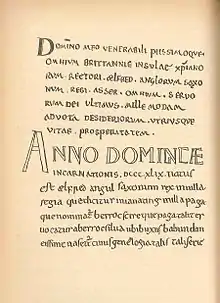 DOMINO MEO VENERABILI PIISSIMOQUE
OMNIUM BRITTANNIÆ INSULÆ XPIANO
RUM RECTORI ÆLFRED ANGLORUM SAXO
NUM REGI ASSER OMNIUM SERVO
RUM DEI ULTIMUS MILLE MODAM
ADVOTA DESIDERIORUM UTRIUSQUE
VITAE PROSPERITATEM.
ANNO DOMINICÆ
INCARNATIONIS. DCCC.XLIX. natus
est ælfred angul saxonum rex in villa
regia quæ dicitur uuanating in illa paga
quæ nominatur berrocscire quæ paga taliter
vocatur a berroc silva ubi buxus abundan
tissime nascitur cuius genelogia tali serie